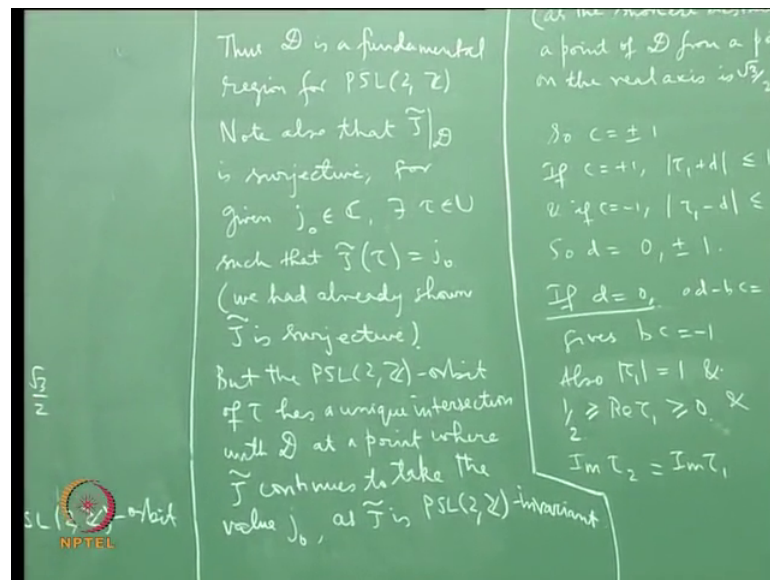 √3/2
SL(2,ℤ)-orbit
NPTEL
Thus 𝒟 is a fundamental
region for PSL(2,ℤ)
Note also that J̃|𝒟
is surjective, for
given j₀ ∈ ℂ, ∃ τ ∈ U
such that J̃(τ) = j₀
(we had already shown
J̃ is surjective).
But the PSL(2,ℤ)-orbit
of τ has a unique intersection
with 𝒟 at a point where
J̃ continues to take the
value j₀, as J̃ is PSL(2,ℤ)-invariant
(as the smallest
a point of 𝒟 from a
on the real axis is √3/2
So c = ±1
If c = +1, |τ₁+d| ≤ 1
& if c = -1, |τ₁-d| ≤
So d = 0, ±1.
If d = 0, ad-bc =
gives bc = -1
Also |τ₁| = 1 &
1/2 ≥ Re τ₁ ≥ 0 &
Im τ₂ = Im τ₁